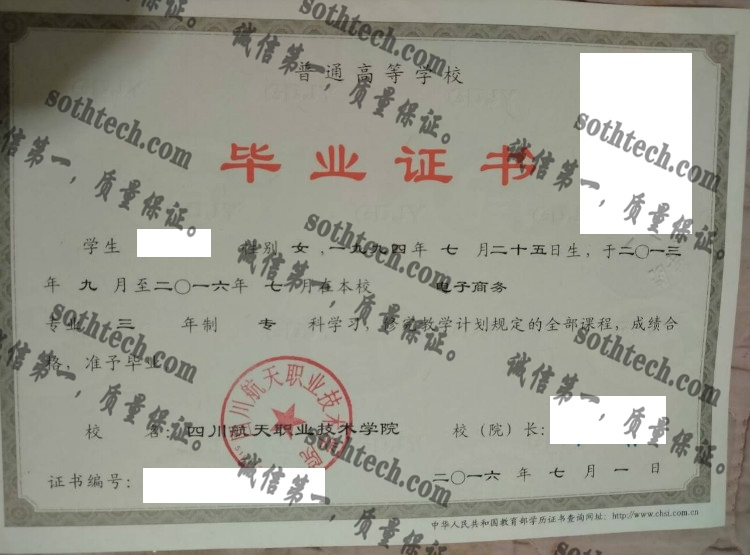 普通高等学校
毕业证书
学生 性别 女 ,一九九四年 七 月二十五日生，于二〇一三
年 九 月至二〇一六年 七 月在本校 电子商务
专业 三 年制 专 科学习，修完教学计划规定的全部课程，成绩合
格，准予毕业。
校 名：四川航天职业技术学院 校（院）长：
证书编号： 二〇一六年 七 月 一 日
中华人民共和国教育部学历证书查询网址：http://www.chsi.com.cn
四川航天职业技术学院
sothtech.com
诚信第一，质量保证。
sothtech.com
诚信第一，质量保证。
sothtech.com
诚信第一，质量保证。
sothtech.com
诚信第一，质量保证。
sothtech.com
诚信第一，质量保证。
sothtech.com
诚信第一，质量保证。
sothtech.com
诚信第一，质量保证。
sothtech.com
诚信第一，质量保证。